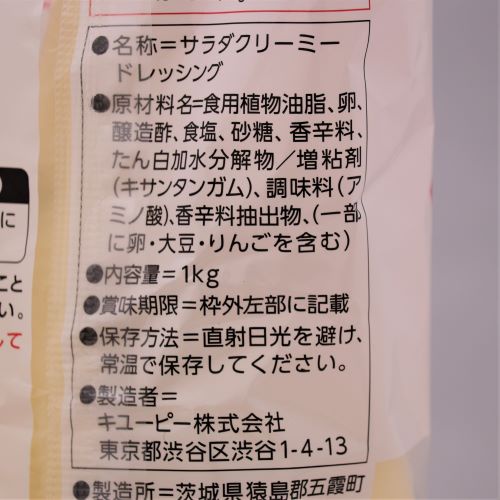 ●名称=サラダクリーミー
ドレッシング
●原材料名=食用植物油脂、卵、
醸造酢、食塩、砂糖、香辛料、
たん白加水分解物/増粘剤
(キサンタンガム)、調味料(ア
ミノ酸)、香辛料抽出物、(一部
に卵・大豆・りんごを含む)
●内容量=1kg
●賞味期限=枠外左部に記載
●保存方法=直射日光を避け、
常温で保存してください。
●製造者=
キユーピー株式会社
東京都渋谷区渋谷1-4-13
●製造所=茨城県猿島郡五霞町
に
こと
い。
して